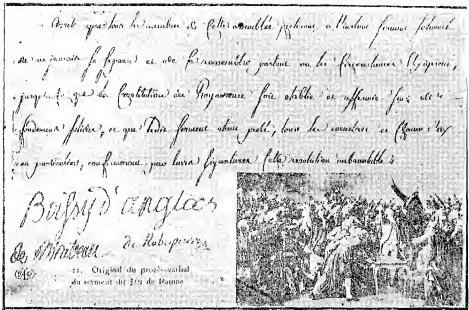 arrête que tous les membres de cette assemblée prêteront à l'instant serment solennel
de ne jamais se séparer et de se rassembler partout où les circonstances l'exigeront,
jusqu'à ce que la Constitution du Royaume soit établie et affermie sur des
fondemens solides, et que ledit serment étant prêté, tous les membres et chacun d'eux
en particulier, confirmeront par leurs signatures cette résolution inébranlable
Boissy d'anglas
de Robespierre
11. Original du procès-verbal
du serment du Jeu de Paume